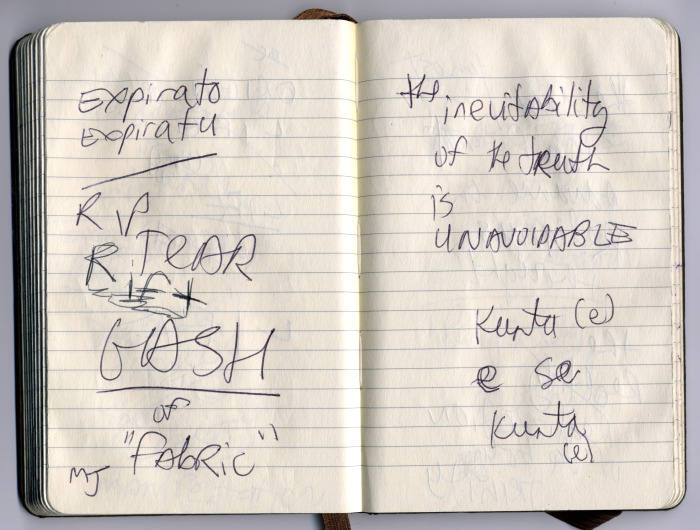 Expirato
Expiratu
Rip
TEAR
Rift
GASH
of
"FABRIC"
MJ
the
inevitability
of the truth
is
UNAVOIDABLE
Kunta (e)
e se
Kunta
(e)